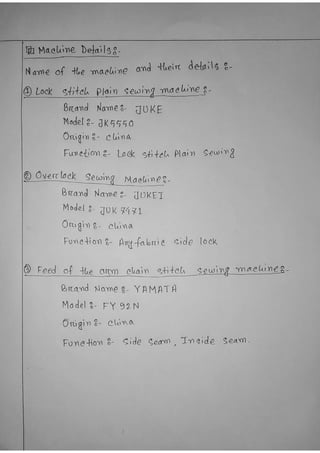 Machine Details:-
Name of the machine and their details :-
① Lock stitch plain sewing machine:-
Brand Name:- JUKE
Model :- JK5550
Origin :- china
Function :- Lock stitch Plain Sewing
② Overclock Sewing Machine:-
Brand Name :- JUKEI
Model :- JUK 7471
Origin :- china
Function :- Any-fabric side lock
③ Feed of the arm chain stitch sewing machine:-
Brand Name :- YAMATA
Model :- FY 92 N
Origin :- china
Function :- Side Seam, Inside Seam.